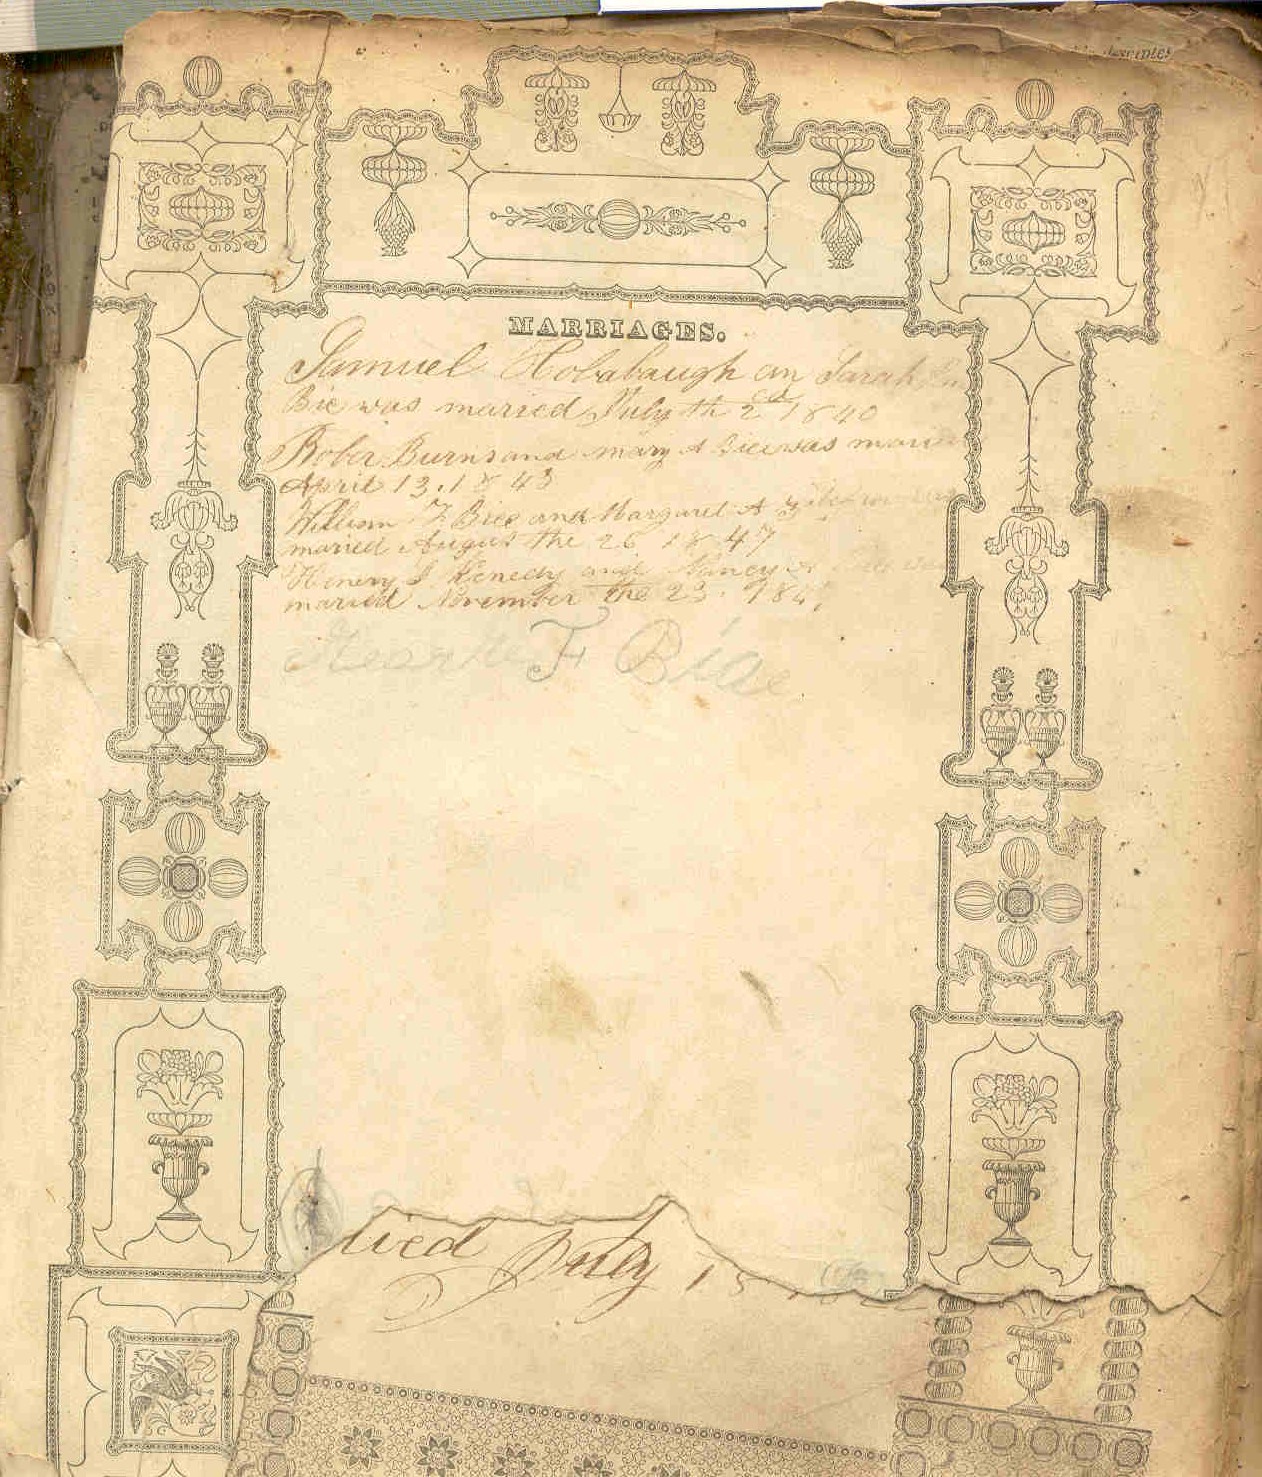 disciples
MARRIAGES.
Samuel Holabaugh an Sarah
Bie was maried July th 2cd 1840
Rober Burns and mary A Bice was
April 13, 1843
William F Bice and Margaret A
maried Augus the 26 1847
Henery J Kenedy and Nancy A
maried November the 23. 184
F
died July 15